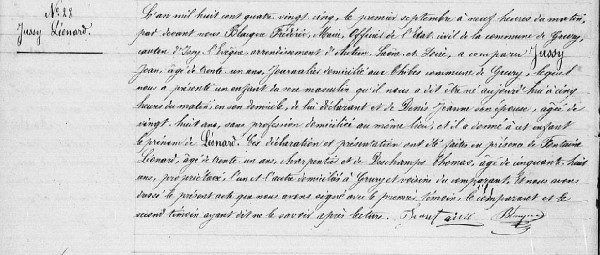 N° 28
Jussy Liénard.
L'an mil huit cent quatre vingt cinq, le premier septembre à neuf heures du matin,
par devant nous Frédéric, Maire, Officier de l'Etat civil de la commune de Grury,
canton d'Issy l'Evêque arrondissement d'Autun, Saône et Loire, a comparu Jussy
Jean, âgé de trente un ans, Journalier domicilié aux commune de Grury, lequel
nous a présenté un enfant du sexe masculin qu'il nous a dit être né aujourd'hui à cinq
heures du matin, en son domicile, de lui déclarant et de Denis Jeanne son épouse, âgée de
vingt-huit ans, sans profession domiciliée au même lieu, et il a donné à cet enfant
le prénom de Liénard. Ces déclaration et présentation ont été faites en présence de Fontaine
Liénard, âgé de trente un ans, charpentier et de Deschamps Thomas, âgé de cinquante huit
ans, propriétaire, l'un et l'autre domiciliés à Grury et voisins du comparant. Et nous avons
dressé le présent acte que nous avons signé avec le premier témoin, le comparant et le
second témoin ayant dit ne le savoir après lecture.